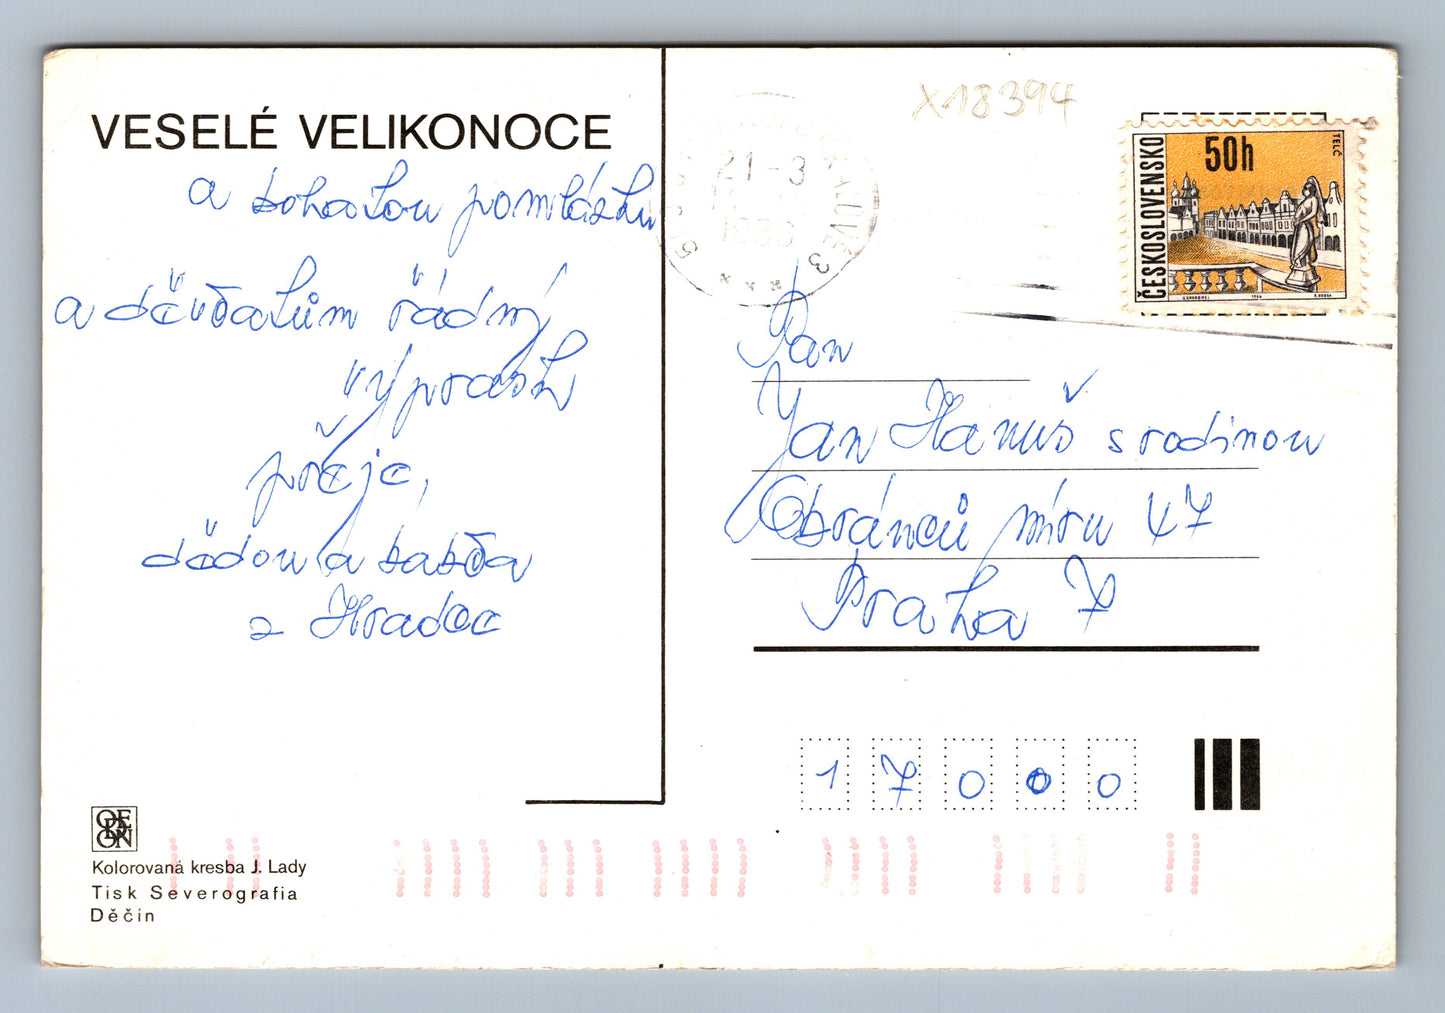 VESELÉ VELIKONOCE
a bohatou pomlázku
a děvčatům řádný
výprask
přeje,
dědou a babča
z Hradce
ODEON
Kolorovaná kresba J. Lady
Tisk Severografia
Děčín
X18394
21-3
1980
3
5
ČESKOSLOVENSKO
50h
TELČ
1966
Pan
Jan Hanuš s rodinou
Obránců míru 47
Praha 7
1 7 0 0 0